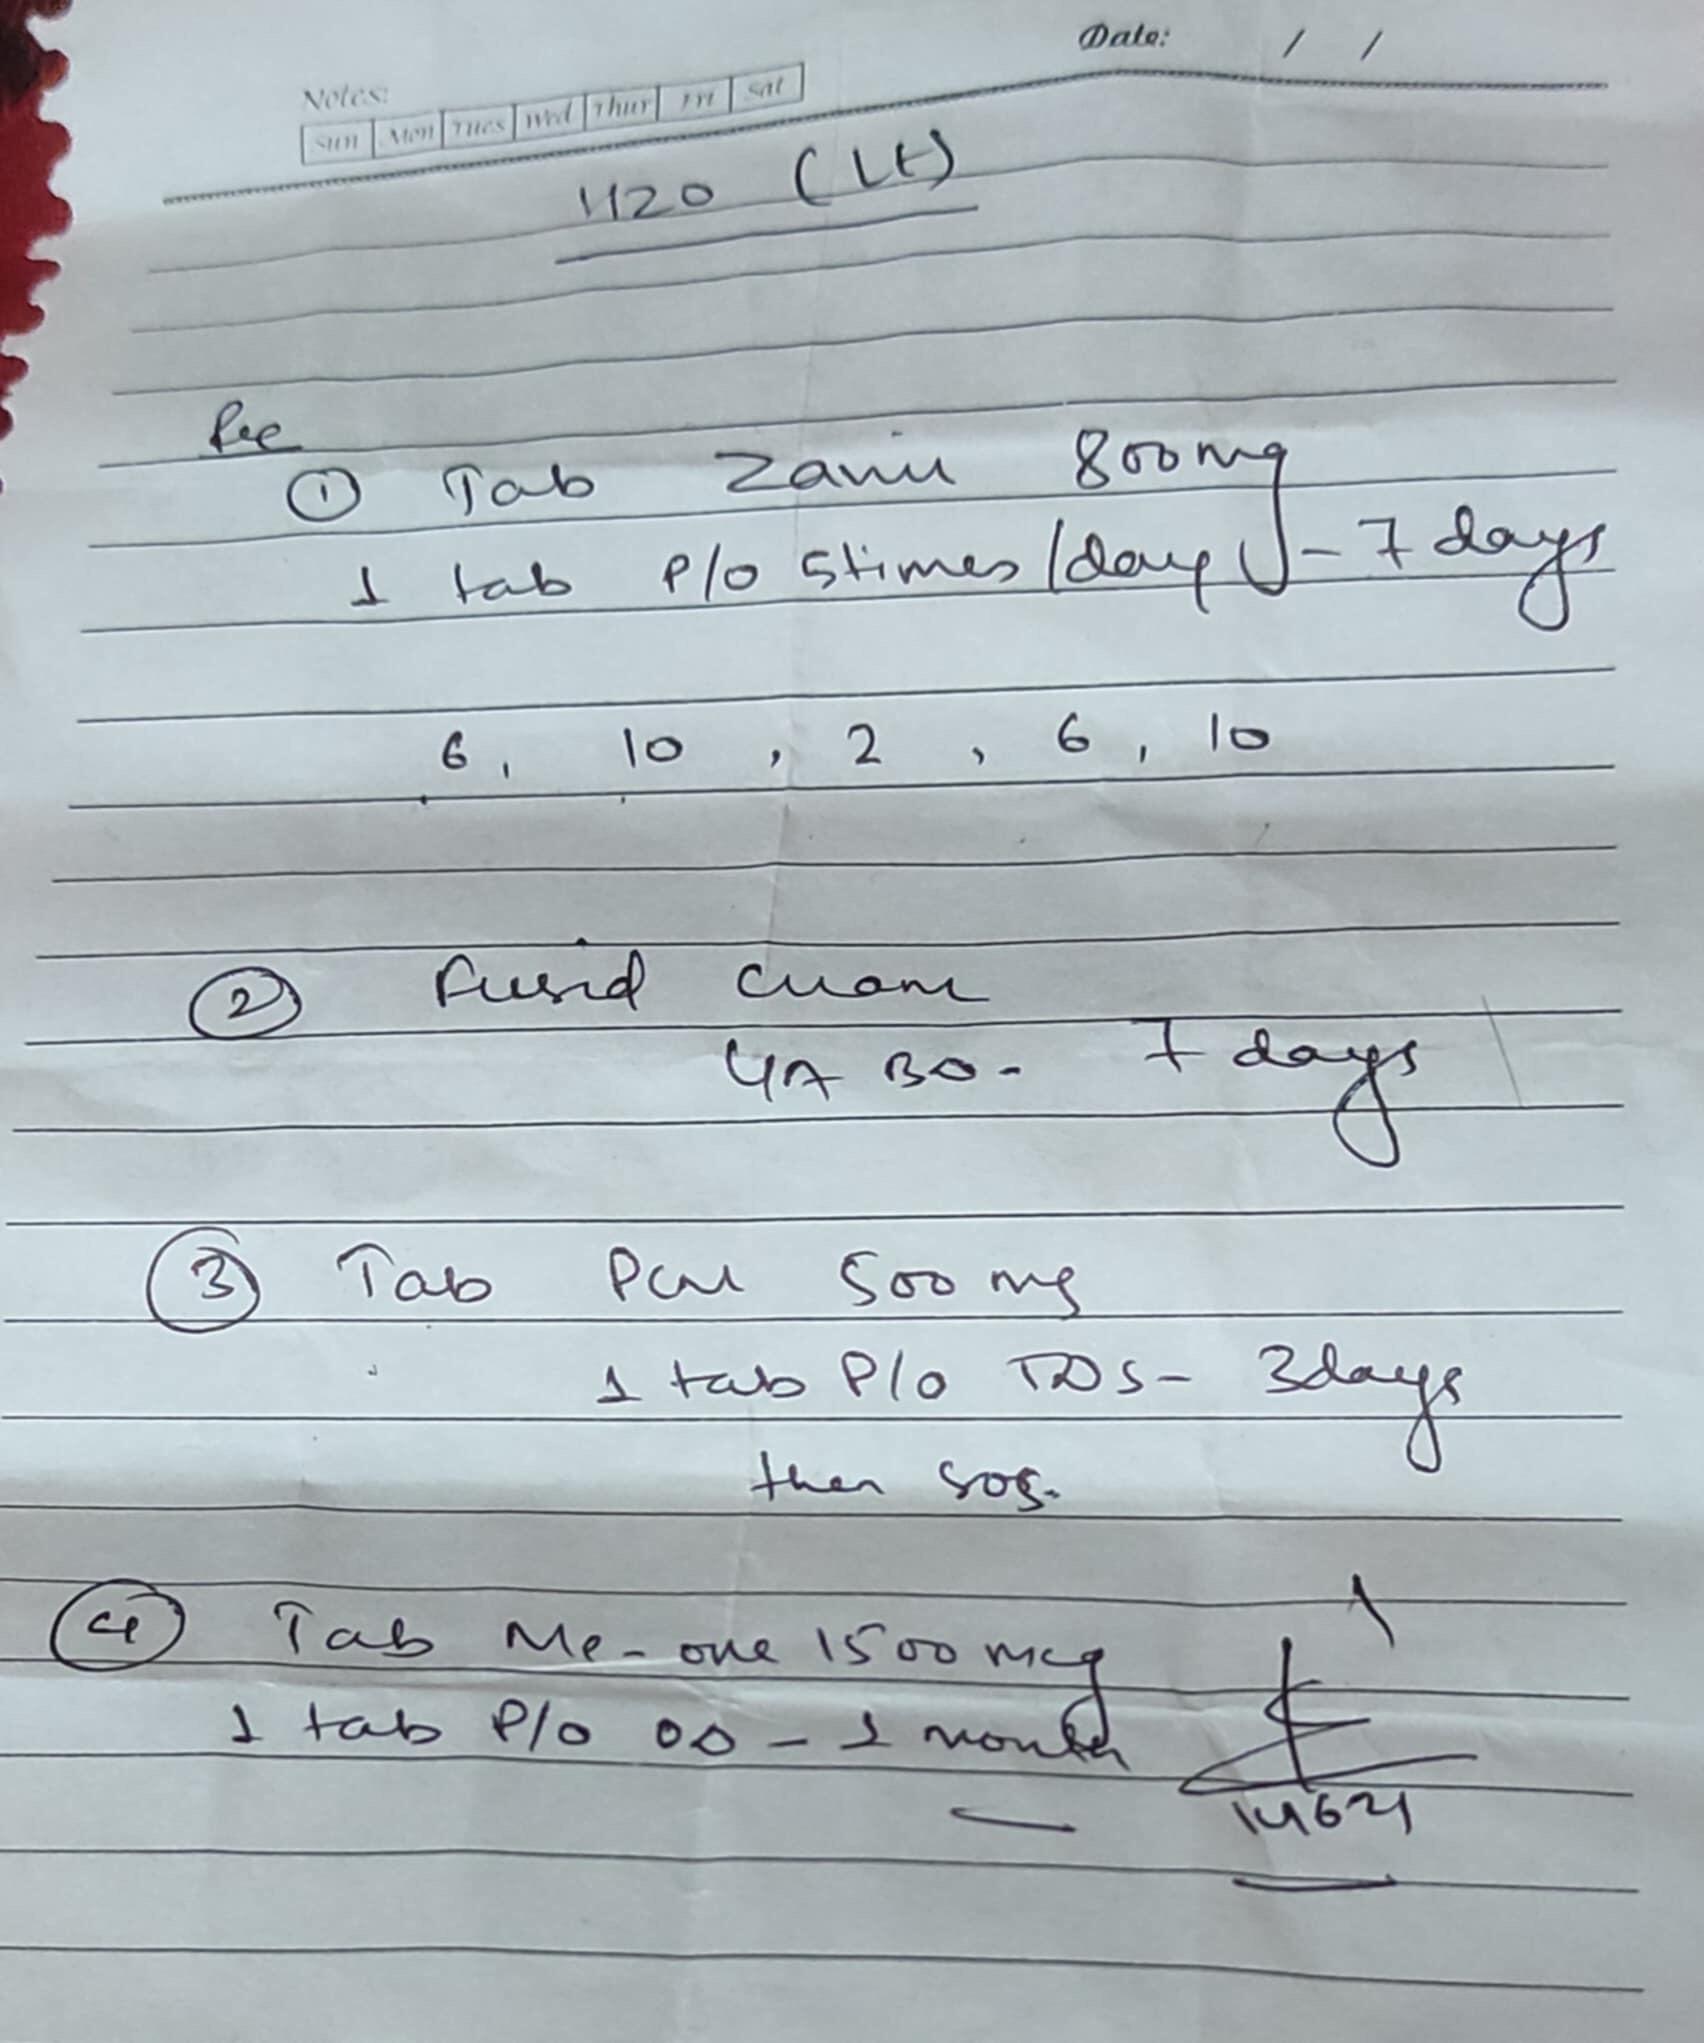 Date: / /
Notes:
Sun Mon Tues Wed Thur Fri Sat
HZO (Lt)
① Tab Zavir 800mg
1 tab P/o 5times/day - 7 days
6, 10, 2, 6, 10
② Fusid cream
L/A BD - 7 days
③ Tab PCM 500 mg
1 tab P/o TDS - 3days
then sos.
④ Tab Me-one 1500 mcg
1 tab P/o OD - 1 month
14621